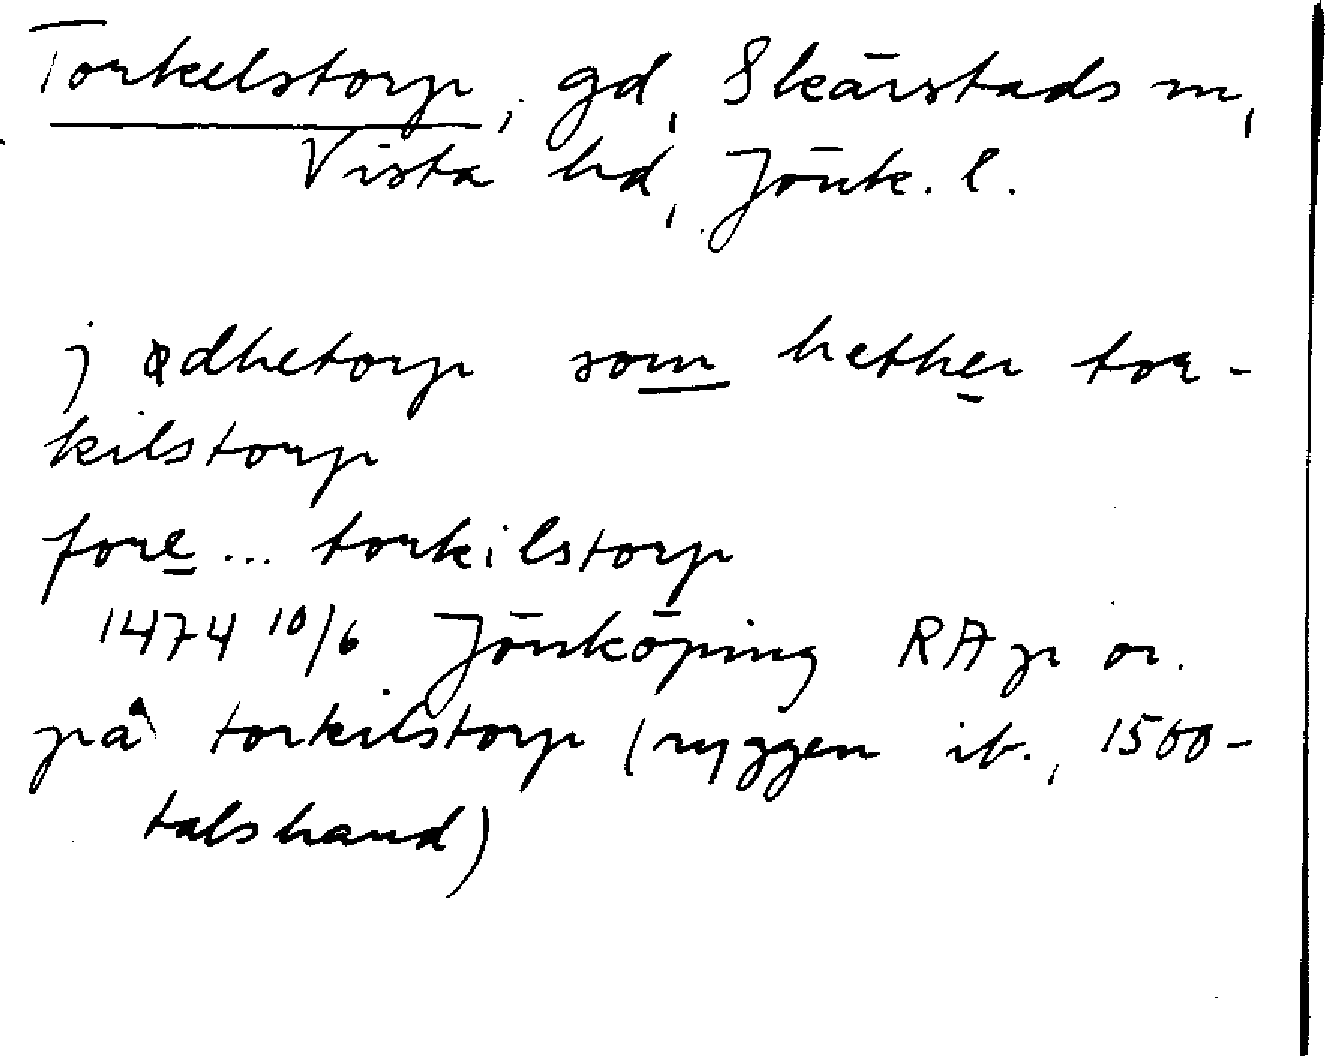 Torkelstorp, gd, Skärstads sn,
Vista hd, Jönk. l.
j ødhetorp som hether tor-
kilstorp
fore ... torkilstorp
1474 10/6 Jönköping RAp or.
på torkilstorp (ryggen ib., 1500-
talshand)